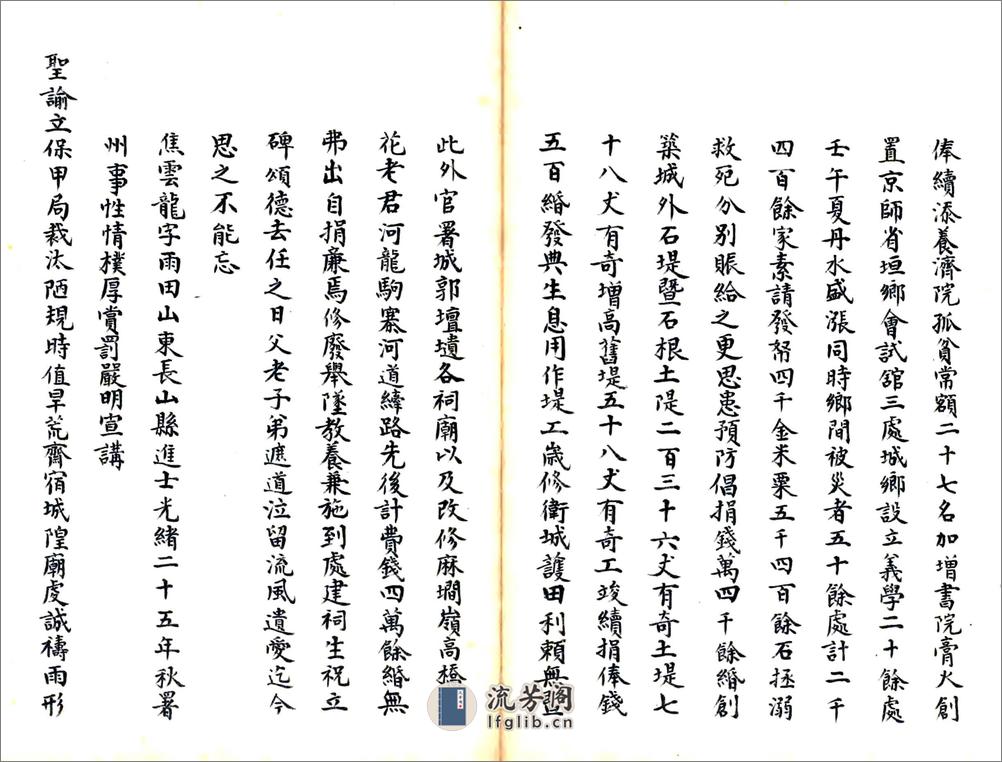 俸續添養濟院孤貧常額二十七名加增書院膏火創
置京師省垣鄉會試舘三處城鄉設立義學二十餘處
壬午夏丹水盛漲同時鄉間被災者五十餘處計二千
四百餘家素請發帑四千金米粟五千四百餘石拯溺
救死分別賬給之更思患預防倡捐錢萬四千餘緡創
築城外石堤暨石根土隄二百三十六丈有奇土堤七
十八丈有奇增高舊堤五十八丈有奇工竣續捐俸錢
五百緡發典生息用作堤工歲修衛城護田利賴無
此外官署城郭壇壝各祠廟以及改修麻澗嶺高橋
花老君河龍駒寨河道縴路先後計費錢四萬餘緡無
弗出自捐廉焉修廢舉墜教養兼施到處建祠生祝立
碑頌德去任之日父老子弟遮道泣留流風遺愛迄今
思之不能忘
焦雲龍字雨田山東長山縣進士光緒二十五年秋署
州事性情樸厚賞罰嚴明宣講
聖諭立保甲局裁汰陋規時值旱荒齋宿城隍廟虔誠禱雨形
流芳閣
lfglib.cn